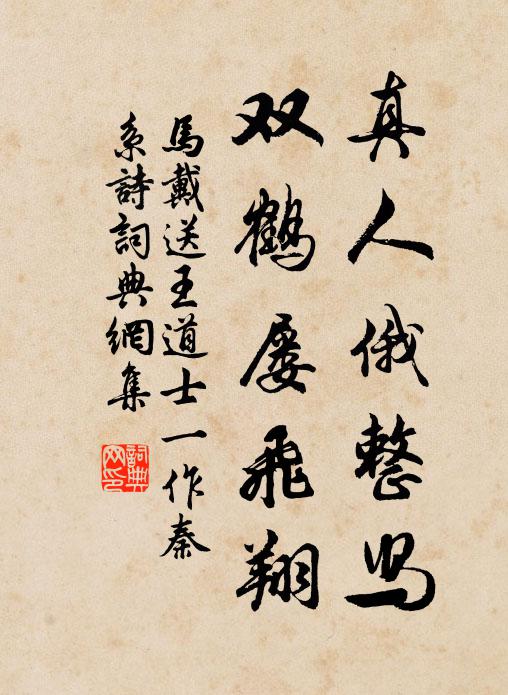 真人俄整舄
双鶴屢飛翔
馬戴送王道士一作秦
系詩詞典網集
詞典
网印